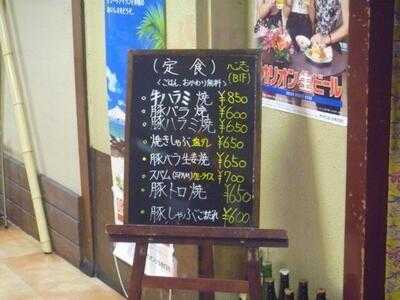 (定食)
(B1F)
(ごはん、おかわり無料)
牛ハラミ焼 ¥850
豚バラ焼 ¥600
豚ハラミ焼 ¥650
焼きしゃぶ 塩ダレ ¥650
豚バラ生姜焼 ¥650
スパム(SPAM) ¥700
豚トロ焼 ¥650
豚しゃぶごまだれ ¥600
オリオン生ビール